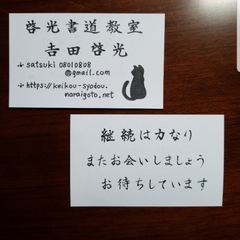 啓光書道教室
吉田啓光
satsuki08010808
@gmail.com
https://keikou-syodou.
noraigoto.net
継続は力なり
またお会いしましょう
お待ちしています